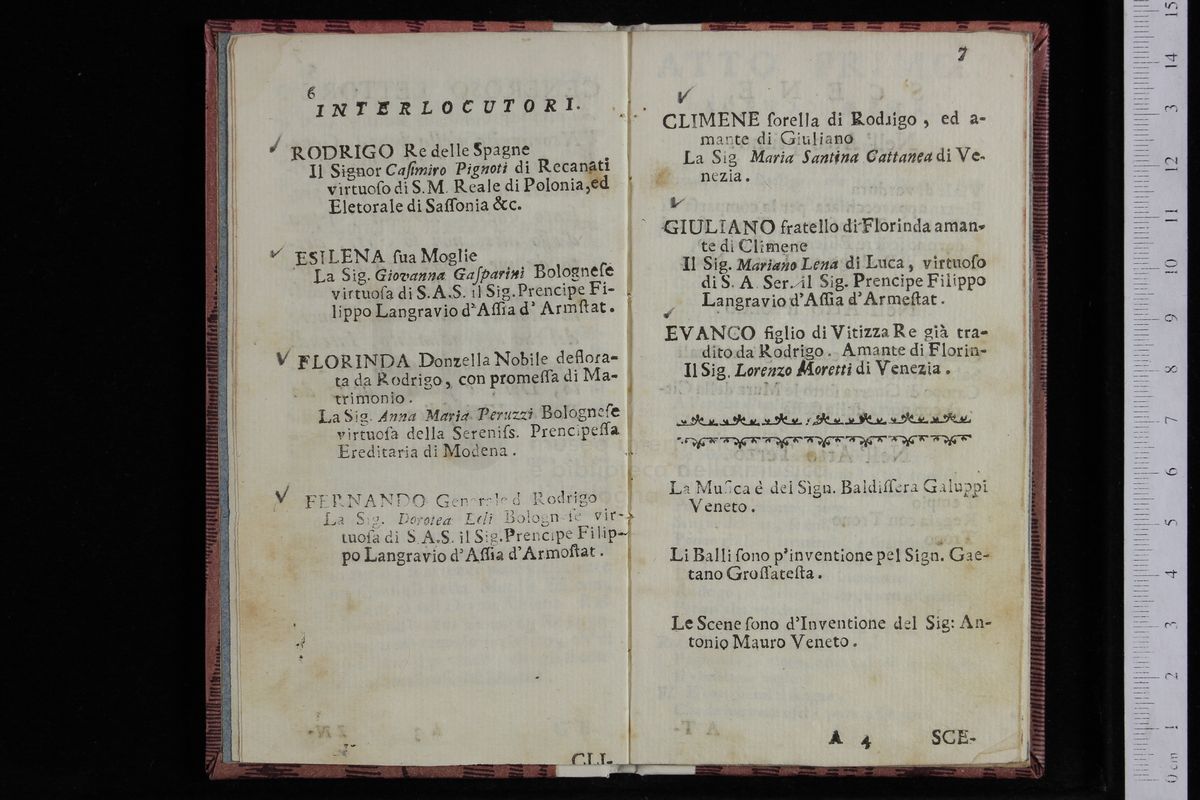 6
INTERLOCUTORI.
RODRIGO Re delle Spagne
Il Signor Caſimiro Pignoti di Recanati
virtuoſo di S.M. Reale di Polonia, ed
Eletorale di Saſſonia &c.
ESILENA ſua Moglie
La Sig. Giovanna Gaſparini Bologneſe
virtuoſa di S.A.S. il Sig. Prencipe Fi-
lippo Langravio d'Aſſia d' Armſtat.
FLORINDA Donzella Nobile deflora-
ta da Rodrigo, con promeſſa di Ma-
trimonio.
La Sig. Anna Maria Peruzzi Bologneſe
virtuoſa della Sereniſs. Prencipeſſa
Ereditaria di Modena.
FERNANDO Generale d Rodrigo
La Sig. Dorotea Loli Bologneſe vir-
tuoſa di S.A.S. il Sig. Prencipe Filip-
po Langravio d'Aſſia d'Armoſtat.
CLI-
7
CLIMENE ſorella di Rodrigo, ed a-
mante di Giuliano
La Sig Maria Santina Cattanea di Ve-
nezia.
GIULIANO fratello di Florinda aman-
te di Climene
Il Sig. Mariano Lena di Luca, virtuoſo
di S. A Ser. il Sig. Prencipe Filippo
Langravio d'Aſſia d'Armeſtat.
EVANCO figlio di Vitizza Re già tra-
dito da Rodrigo. Amante di Florin-
Il Sig. Lorenzo Moretti di Venezia.
La Muſica è del Sign. Baldiſſera Galuppi
Veneto.
Li Balli ſono p'inventione pel Sign. Gae-
tano Groſſateſta.
Le Scene ſono d'Inventione del Sig: An-
tonio Mauro Veneto.
A 4 SCE-